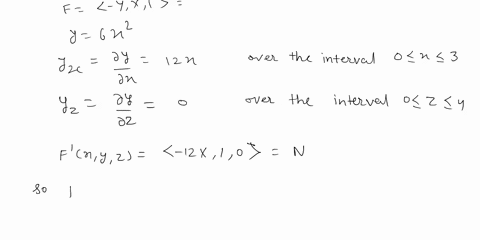 F = <-y, x, 1> =
y = 6x²
y_x = ∂y/∂x = 12x over the interval 0 ≤ x ≤ 3
y_z = ∂y/∂z = 0 over the interval 0 ≤ z ≤ 4
F'(x, y, z) = <-12x, 1, 0> = N
so |